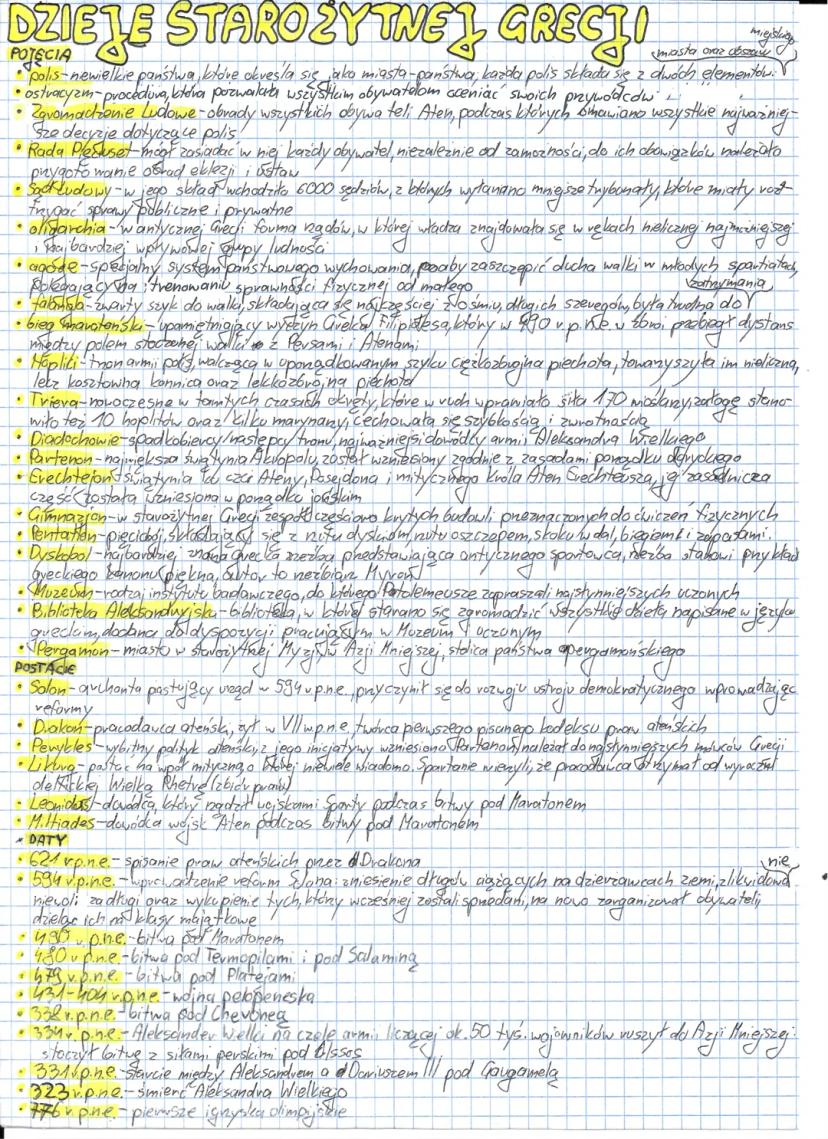 DZIEJE STAROŻYTNEJ GRECJI
POJĘCIA
miasta oraz obszaru miejskiego
• polis-niewielkie państwa, które określa się jako miasta-państwa, każda polis składa się z dwóch elementów:
• ostracyzm-procedura, która pozwalała wszystkim obywatelom oceniać swoich przywódców
• Zgromadzenie Ludowe-obrady wszystkich obywateli Aten, podczas których omawiano wszystkie najważniej-
sze decyzje dotyczące polis
• Rada Pięciuset-mógł zasiadać w niej każdy obywatel, niezależnie od zamożności, do ich obowiązków należało
przygotowanie obrad eklezji i ustaw
• Sąd Ludowy-w jego skład wchodziło 6000 sędziów, z których wyłaniano mniejsze trybunały, które miały rozs-
trzygać sprawy publiczne i prywatne
• oligarchia-w antycznej Grecji forma rządów, w której władza znajdowała się w rękach nielicznej najmniejszej
i najbardziej wpływowej grupy ludności
• agoge-specjalny system państwowego wychowania, aby zaszczepić ducha walki w młodych spartiatach,
polegający na trenowaniu sprawności fizycznej od małego
zatrzymania
• falanga-zwarty szyk do walki, składająca się najczęściej z ośmiu, długich szeregów, była trudna do
• bieg maratoński-upamiętniający wyczyn Greków Filipidesa, który w 490 r. p.n.e. w zbroi przebiegł dystans
między polem stoczonej walki z Persami i Atenami
• Hoplici-tron armii polis, walczącą w uporządkowanym szyku ciężkozbrojna piechota, towarzyszyła im nieliczna,
lecz kosztowna konnica oraz lekkozbrojna piechota
• Triera-nowoczesne w tamtych czasach okręty, które w ruch wprawiało siła 170 wioślarzy, załogę stano-
wiło też 10 hoplitów oraz kilku marynarzy, cechowała się szybkością i zwrotnością
• Diadochowie-spadkobiercy/następcy tronu, najważniejsi dowódcy armii Aleksandra Wielkiego
• Partenon-największa świątynia Akropolu, został wzniesiony zgodnie z zasadami porządku doryckiego
• Erechtejon-świątynia ku czci Ateny, Posejdona i mitycznego króla Aten Erechteusza, jej zasadnicza
część została wzniesiona w porządku jońskim
• Gimnazjon-w starożytnej Grecji zespół częściowo krytych budowli przeznaczonych do ćwiczeń fizycznych
• Pentatlon-pięciobój, składający się z rzutu dyskiem, rzutu oszczepem, skoku w dal, biegiem i zapasami.
• Dyskobol-najbardziej znana grecka rzeźba przedstawiająca antycznego sportowca, rzeźba stanowi przykład
greckiego kanonu piękna, autor to rzeźbiarz Myron
• Muzeum-rodzaj instytutu badawczego, do którego Ptolemeusze zapraszali najsłynniejszych uczonych
• Biblioteka Aleksandryjska-biblioteka, w której starano się zgromadzić wszystkie dzieła napisane w języku
greckim, dodana do dyspozycji pracującym w Muzeum uczonym
• Pergamon-miasto w starożytnej Myzji, w Azji Mniejszej, stolica państwa pergamońskiego
POSTACIE
• Solon-archonta pastujący urząd w 594 r.p.n.e., przyczynił się do rozwoju ustroju demokratycznego wprowadzając
reformy
• Drakon-pracodawca ateński, żył w VII w.p.n.e, twórca pierwszego pisanego kodeksu praw ateńskich
• Perykles-wybitny polityk ateński, z jego inicjatywy wzniesiono Partenon, należał do najsłynniejszych mówców Grecji
• Likurg-postać na wpół mityczna, o której niewiele wiadomo. Spartanie wierzyli, że pracodawca otrzymał od wyroczni
delfickiej Wielką Rhetrę (zbiór praw)
• Leonidas-dowódca, który rządził wojskami Sparty podczas bitwy pod Maratonem
• Miltiades-dowódca wojsk Aten podczas bitwy pod Maratonem
• DATY
• 621 r.p.n.e.-spisanie praw ateńskich przez Drakona
nie
• 594 r.p.n.e.-wprowadzenie reform Solona: zniesienie długów ciążących na dzierżawcach ziemi, zlikwidowa
niewoli za długi oraz wykupienie tych, który wcześniej zostali sprzedani, na nowo zorganizował obywateli,
dzieląc ich na klasy majątkowe
• 490 r.p.n.e.-bitwa pod Maratonem
• 480 r.p.n.e.-bitwa pod Termopilami i pod Salaminą
• 479 r.p.n.e.-bitwa pod Platejami
• 431-404 r.p.n.e.-wojna peloponeska
• 338 r.p.n.e.-bitwa pod Cheroneą
• 334 r.p.n.e.-Aleksander Wielki na czele armii liczącej ok. 50 tyś. wojowników ruszył do Azji Mniejszej:
stoczył bitwę z siłami perskimi pod Issos
• 331 r.p.n.e.-starcie między Aleksandrem a Dariuszem III pod Gaugamelą
• 323 r.p.n.e.-śmierć Aleksandra Wielkiego
• 776 r.p.n.e.-pierwsze igrzyska olimpijskie